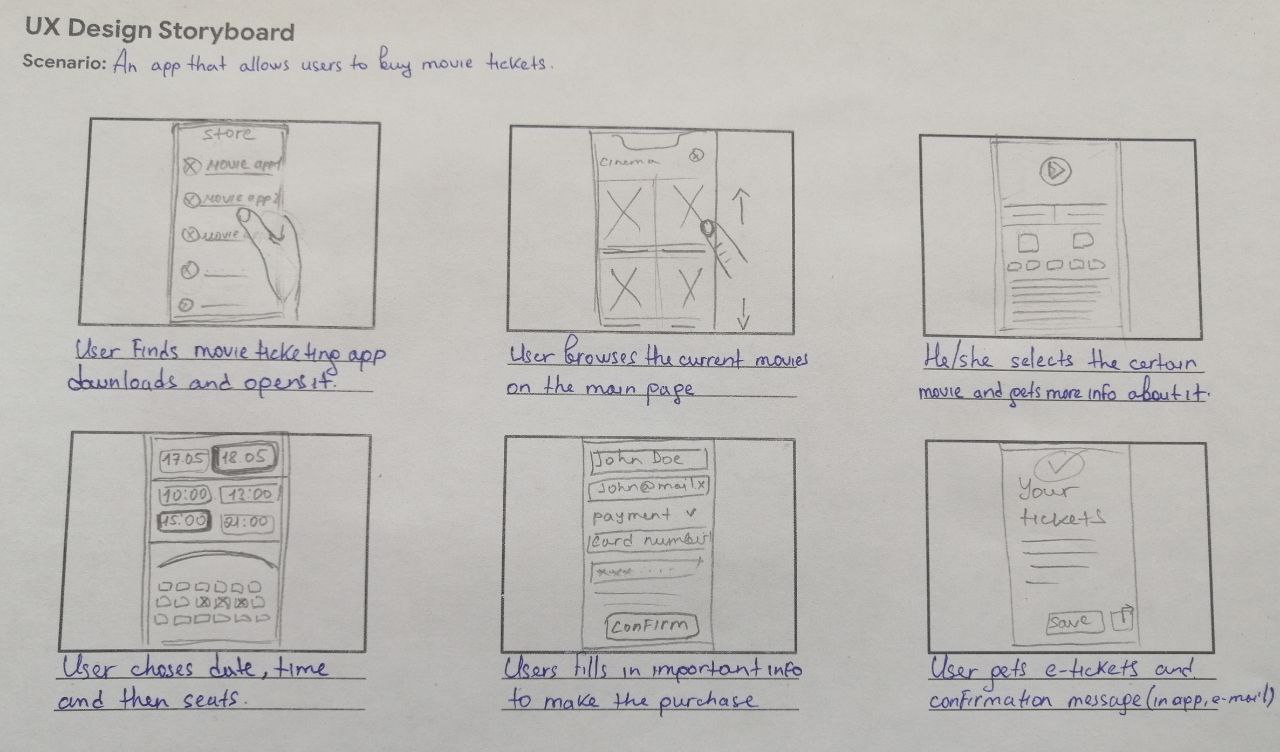 UX Design Storyboard
Scenario: An app that allows users to buy movie tickets.
store
Movie app1
Movie app2
Movie
User finds movie ticketing app
downloads and opens it.
cinema
User browses the current movies
on the main page
He/she selects the certain
movie and gets more info about it.
17.05 18.05
10:00 12:00
15:00 21:00
User choses date, time
and then seats.
John Doe
John@mail.x
payment
Card number
xxxx ....
Confirm
Users fills in important info
to make the purchase
Your
tickets
Save
User gets e-tickets and
confirmation message (in app, e-mail)